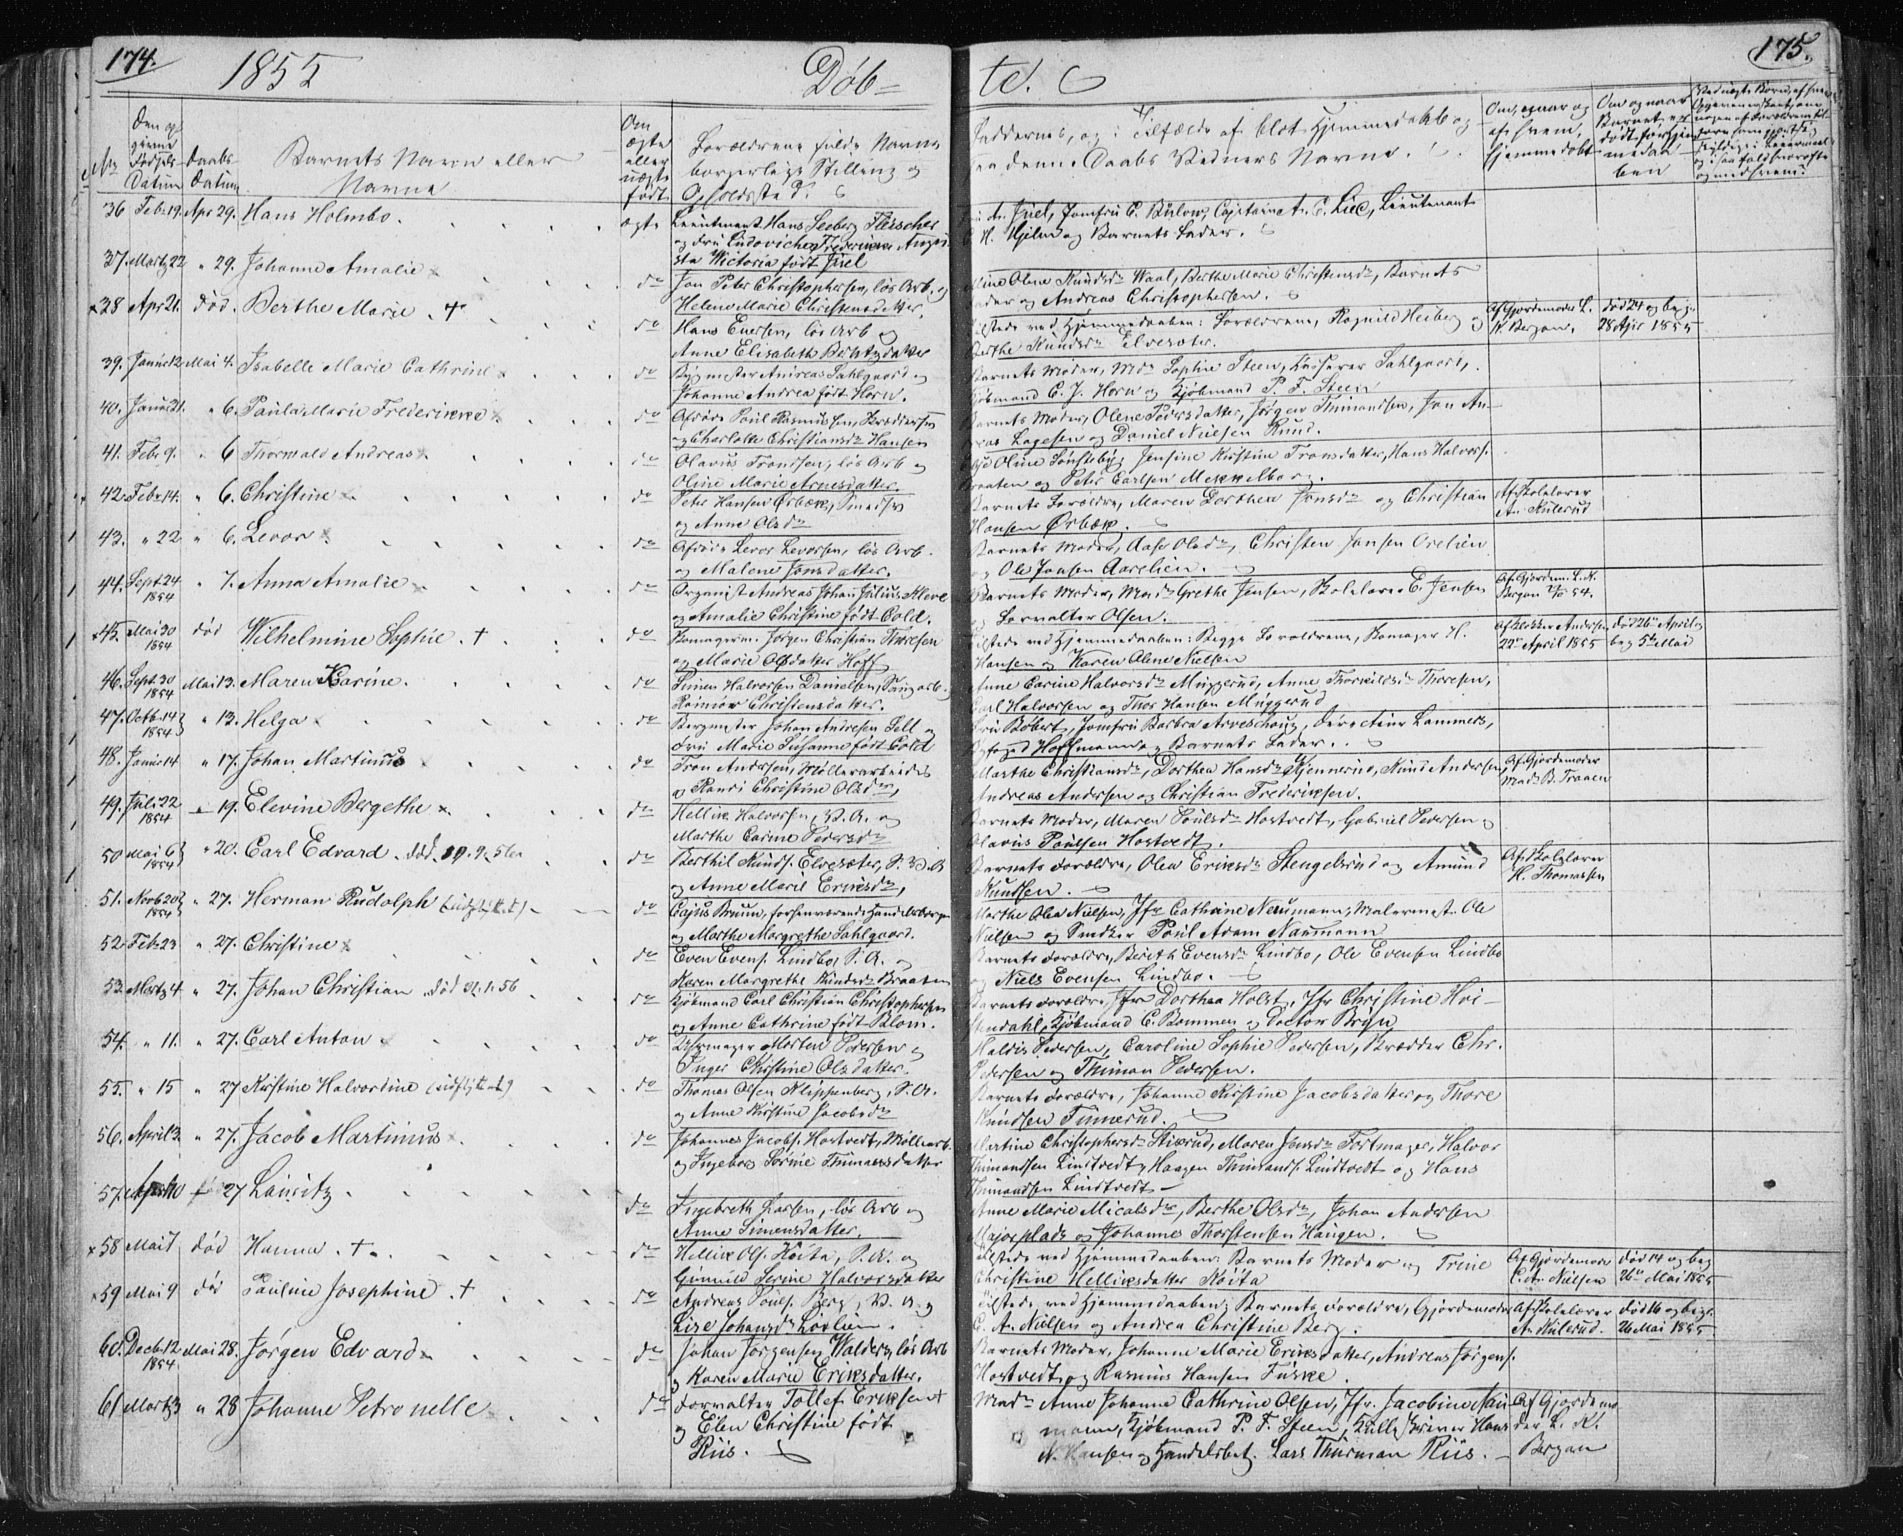 174.
1855
Døb=
te.
175.
No
Den op
givne
Fødsels
Datum
Daabs
Datum
Barnets Navn eller
Navne
Om
ægte
eller
uægte
født
Forældrene fulde Navne
borgerlige Stilling og
Opholdssted.
Faddernes, og i Tilfælde af blot Hjemmedaab og
denne Daabs Vidners Navne.
Om, og naar og
af hvem,
hjemmedøbt
Om og naar
Barnet er
dødt forinden
36 Febr 19. Apr 29. Hans Holmbo.
ægte
Lieutenant Hans Seeberg Fleischer
og Fru Ludovicha Frederikke Augu-
sta Victoria født Juel
Juel, Jomfru C. Bülow, Capitain A. C. Lie, Lieutenant
C. H. Hjelm og Barnets Fader.
37. Martz 22 " 29. Johanne Amalie
do
Jon Peter Christophersen, løs Arb. og
Helene Marie Christensdatter.
Olene Knudsdr Waal, Berthe Marie Christensdr, Barnets
Fader og Andreas Christophersen.
38 Apr 21. død. Berthe Marie. +
do
Hans Evensen, løs Arb og
Anne Elisabeth
Tilstede ved Hjemmedaaben: Forældrene, Ragnild Heiberg og
Berthe Knudsdr Elvesæter.
Af Gjordemoder L.
K Bergan.
død 24 og beg.
28 Apr 1855
39. Januar 12 Mai 4. Isabelle Marie Cathrine
do
Andreas Sahlgaard og
Johanne Andrea født Horn.
Barnets Moder, Md. Sophie Steen, Kasserer Sahlgaard,
Kjøbmand C. J. Horn og Kjøbmand P. F. Steen
40. Januar 31. " 6. Paula Marie Frederikke
do
Afdøde Paul Rasmussen,
og Charlotte Christiansdr Hansen
Barnets Moder, Olene Pedersdatter, Jørgen Thimandsen, Jon An-
dreas Lagesen og Daniel Nielsen Rund.
41. Febr 9. " 6 Thorwald Andreas
do
Olavus Trondsen, løs Arb og
Oline Marie Arnesdatter.
Oline Sønsteby, Jensine Kirstine Tronsdatter, Hans Halvors.
Braaten og Peter Carlsen Mekkelborg.
42. Febr 14. " 6. Christine
do
Peter Hansen Ørbæk, Smedsv
og Anne Olsdr
Barnets Forældre, Maren Dorthea Jonsdr og Christian
Hansen Ørbæk.
Af Skolelærer
An. Kulerud
43. " 22 " 6. Levor
do
Afdøde Levor Levorsen, løs Arb.
og Malene Jonsdatter.
Barnets Moder, Aase Olsdr, Christen Jonsen Orelien
og Ole Jonsen Aarelien.
44. Sept 24
1854
" 7. Anna Amalie
do
Organist Andreas Johan Julius Kleve
og Amalie Christine født Cold.
Barnets Moder, Md. Grethe Jensen, Skolelærer E. Jensen
og Forvalter Olsen.
Af Gjordem. L. K.
Bergan
45. Mai 30
1854
død Wilhelmine Sophie. +
do
Jørgen Christian Thoresen
og Marie Olsdatter Hoff
Tilstede ved Hjemmedaaben: Begge Forældrene, H.
Hansen og Karen Olene Nielsen
Af Klokker Andersen
22de April 1855
død 26de April og
beg 5te Mai
46. Sept 30
1854
Mai 13. Maren Karine.
do
Simen Halvorsen Danielsen,
Christensdatter.
Anne Carine Halvorsdr Muggerud, Anne Thorkildsdr Thoresen,
Carl Halvorsen og Thor Hansen Muggerud
47. Octb 14
1854
" 13. Helga
do
Bergmester Johan Andresen Sell og
Fru Marie Susanne født Cold
Fru Bøbert, Jomfru Barbra Arveschoug, Directeur Lammers,
Byfoged Hoffmann og Barnets Fader.
48. Januar 14 " 17. Johan Martinus
do
Tron Andersen, Møllerarbeider
og Randi Christine Olsdr,
Marthe Christiansdr, Dorthea Hansdr Kjennerud, Knud Andersen,
Andreas Andersen og Christian Frederiksen.
Af Gjordemoder
Mad. B. Traaen
49. Juli 22
1854
" 19. Elevine Bergethe
do
Hellik Halvorsen, B. A. og
Marthe Carine Pedersdr
Barnets Moder, Maren Poulsdr Hostvedt, Gabriel Pedersen og
Olavus Paulsen Hostvedt.
50 Mai 6
1854
" 20. Carl Edvard. død 19.9.56
do
Berthil Knuds. Elvesæter,
og Anne Marie Eriksdr,
Barnets Forældre, Olea Eriksdr Stengelsrud og Amund
Knudsen.
Af Skolelærer
H. Thomassen
51. Novb 20
1854
" 27. Herman Rudolph (udflyttet)
do
Cajus Bruun, forhenværende Handelsborger
og Marthe Margrethe Sahlgaard.
Marthe Olea Nielsen, Jfr Cathrine Neumann, Malermest. Ole
Nielsen og Snedker Paul Adam Naumann
52. Feb 23 " 27. Christine
do
Even Evens. Lindbo, S. A. og
Karen Margrethe Knudsdr Braaten
Barnets Forældre, Bereth Evensdr Lindbo, Ole Evensen Lindbo
og Niels Evensen Lindbo.
53. Martz 4 " 27. Johan Christian. død 21.1.56
do
Kjøbmand Carl Christian Christophersen
og Anne Cathrine født Blom.
Barnets Forældre, Jfr Dorthea Holst, Jfr Christine Hvi-
tendahl, Kjøbmand C. Bommen og Doctor Bryn
54. " 11. " 27. Carl Anton
do
Uhrmager Morten Pedersen og
Inger Christine Olsdatter.
Haldis Pedersen, Caroline Sophie Pedersen, Brødder Chr.
Pedersen og Thiman Pedersen.
55. " 15 " 27 Kirstine Halvordine (udflyttet)
do
Thomas Olsen Klippenberg, S. A.
og Anne Kirstine Jacobsdr
Barnets Forældre, Johanne Kirstine Jacobsdatter og Thore
Knudsen Tinnerud.
56. April 3. " 27. Jacob Martinus
do
Johannes Jacobs. Hostvedt, Møllearb
og Ingeborg Sørine Thimansdatter
Martine Christophersdr Stixrud, Maren Jonsdr Fortmager, Halvor
Thimandsen Lindtvedt, Haagen Thimands. Lindtvedt og Hans
Thimandsen Lindtvedt
57. April 10 " 27 Lauritz
do
Ingebreth Larsen, løs Arb og
Anne Simensdatter.
Anne Marie Micalsdr, Berthe Olsdr, Johan Andersen
Majorplads og Johanne Thorstensen Haugen.
58 Mai 7 død Hanna. +
do
Hellik Ols. Koita, S. A. og
Gunnild Serine Halvorsdatter
Tilstede ved Hjemmedaaben: Barnets Moder og Trine
Christine Helliksdatter Koita
Af Gjordemoder
C. A. Nielsen
død 14 og beg
26de Mai 1855
59 Mai 9 død Pauline Josephine. +
do
Andreas Pouls. Berg, B. A. og
Lise Johansdr Lovlien.
Tilstede ved Hjemmedaaben; Barnets Forældre, Gjordemoder
C. A. Nielsen og Andrea Christine Berg.
Af Skolelærer
A. Kulerud.
død 16 og beg.
26 Mai 1855
60. Decbr 12
1854.
Mai 28. Jørgen Edvard
do
Johan Jørgensen Walders, løs Arb
og Karen Marie Eriksdatter.
Barnets Moder, Johanne Marie Eriksdatter, Andreas Jørgens.
Hostvedt og Rasmus Hansen Fuske.
61 Martz 3 " 28 Johanne Petronelle
do
Forvalter Tollef Eriksen
og Elen Christine født
Riis.
Madm Anne Johanne Cathrine Olsen, Jfr. Jacobine Nau-
mann, Kjøbmand P. F. Steen, Hans
N. Hansen og Handelsbet. Lars Thurman Riis.
Af Gjordemo
der L. K.
Bergan